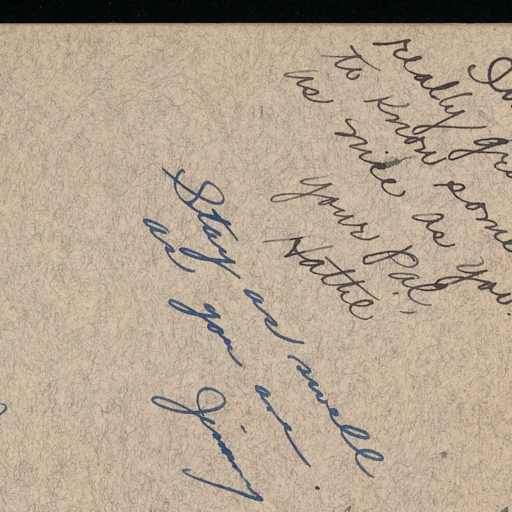 really
to know some
us nice as you.
your Pal,
Hattie
Stay as swell
as you are.
Jimmy